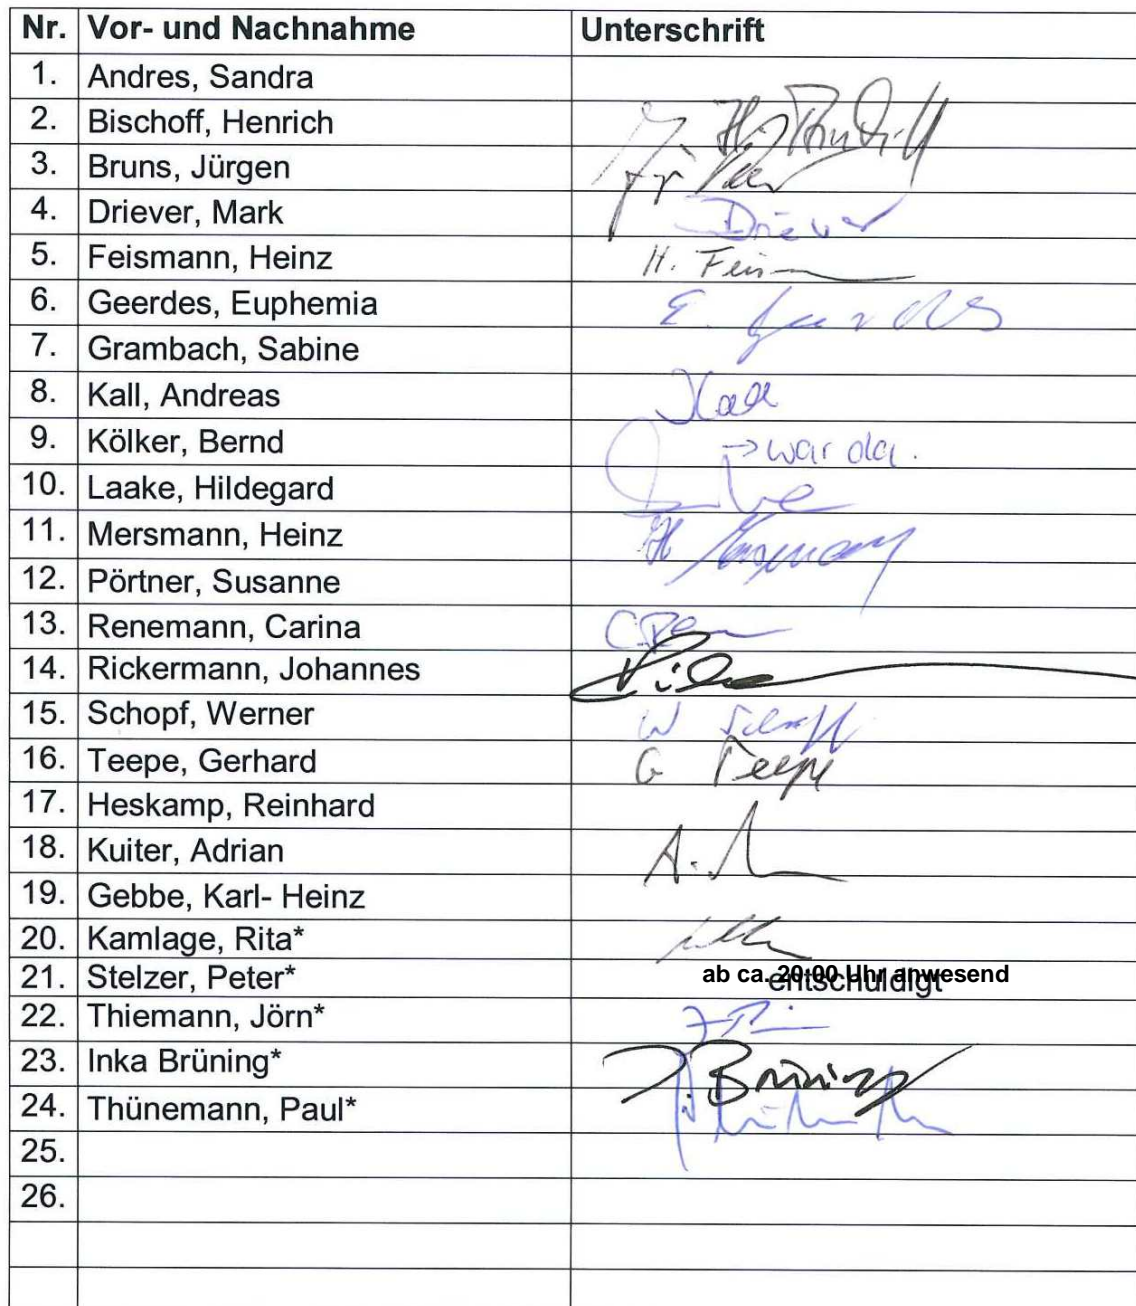 Nr. Vor- und Nachnahme Unterschrift
1. Andres, Sandra
2. Bischoff, Henrich
3. Bruns, Jürgen
4. Driever, Mark Driever
5. Feismann, Heinz H. Feis
6. Geerdes, Euphemia E. Geerdes
7. Grambach, Sabine
8. Kall, Andreas Kall
9. Kölker, Bernd → war da.
10. Laake, Hildegard
11. Mersmann, Heinz H Mersmann
12. Pörtner, Susanne
13. Renemann, Carina
14. Rickermann, Johannes
15. Schopf, Werner W Schopf
16. Teepe, Gerhard G Teepe
17. Heskamp, Reinhard
18. Kuiter, Adrian
19. Gebbe, Karl- Heinz
20. Kamlage, Rita*
21. Stelzer, Peter* ab ca. 20:00 Uhr anwesend
entschuldigt
22. Thiemann, Jörn*
23. Inka Brüning* I. Brüning
24. Thünemann, Paul*
25.
26.